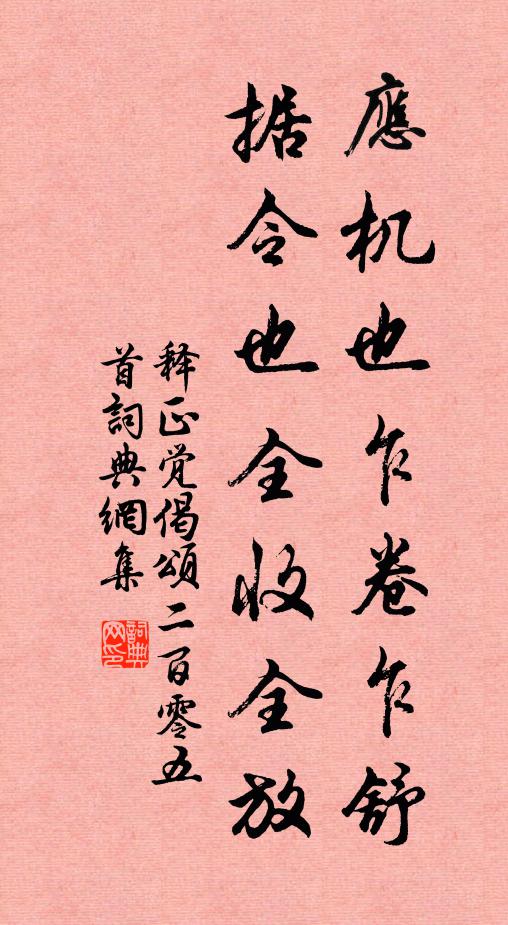 應机也乍卷乍舒
据令也全收全放
释正觉偈頌二百零五
首詞典網集
詞典
网印